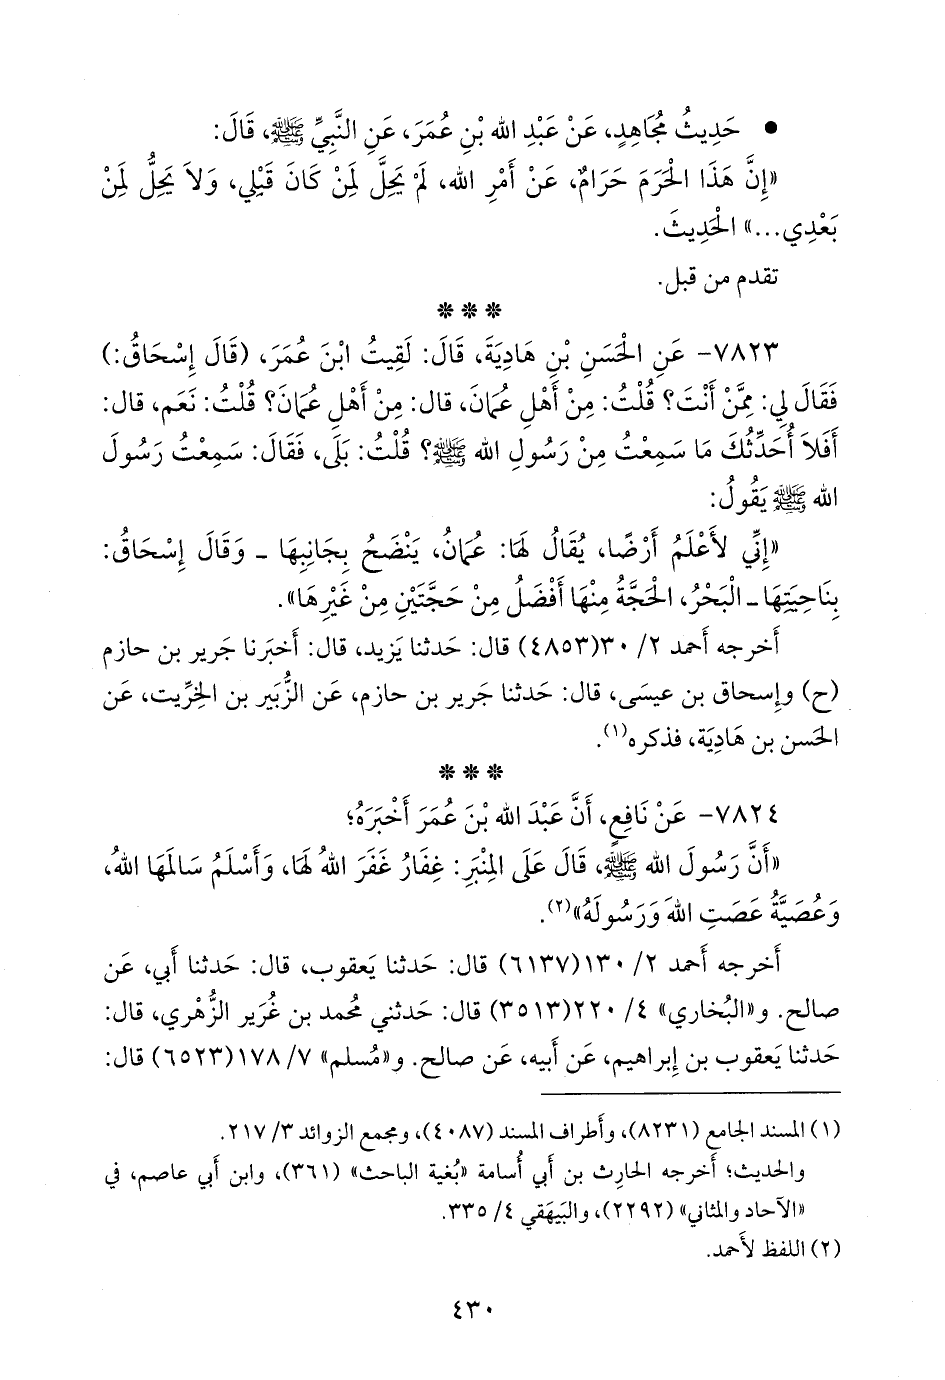 • حَدِيثُ مُجَاهِدٍ، عَنْ عَبْدِ الله بْنِ عُمَرَ، عَنِ النَّبِيِّ ﷺ، قَالَ:
«إِنَّ هَذَا الْحَرَمَ حَرَامٌ، عَنْ أَمْرِ الله، لَمْ يَحِلَّ لِمَنْ كَانَ قَبْلِي، وَلاَ يَحِلُّ لِمَنْ
بَعْدِي...» الْحَدِيثَ.
تقدم من قبل.
* * *
٧٨٢٣- عَنِ الْحَسَنِ بْنِ هَادِيَةَ، قَالَ: لَقِيتُ ابْنَ عُمَرَ، (قَالَ إِسْحَاقُ:)
فَقَالَ لِي: مِمَّنْ أَنْتَ؟ قُلْتُ: مِنْ أَهْلِ عُمَانَ، قال: مِنْ أَهْلِ عُمَانَ؟ قُلْتُ: نَعَم، قال:
أَفَلاَ أُحَدِّثُكَ مَا سَمِعْتُ مِنْ رَسُولِ الله ﷺ؟ قُلْتُ: بَلَى، فَقَالَ: سَمِعْتُ رَسُولَ
الله ﷺ يَقُولُ:
«إِنِّي لأَعْلَمُ أَرْضًا، يُقَالُ لَهَا: عُمَانُ، يَنْضَحُ بِجَانِبِهَا - وَقَالَ إِسْحَاقُ:
بِنَاحِيَتِهَا - الْبَحْرُ، الْحَجَّةُ مِنْهَا أَفْضَلُ مِنْ حَجَّتَيْنِ مِنْ غَيْرِهَا».
أخرجه أحمد ٢/ ٣٠(٤٨٥٣) قال: حَدثنا يَزيد، قال: أخبَرنا جَرير بن حازم
(ح) وإسحاق بن عيسَى، قال: حَدثنا جَرير بن حازم، عَن الزُّبَير بن الخِرِّيت، عَن
الحَسن بن هَادِيَة، فذكره(١).
* * *
٧٨٢٤- عَنْ نَافِعٍ، أَنَّ عَبْدَ الله بْنَ عُمَرَ أَخْبَرَهُ؛
«أَنَّ رَسُولَ الله ﷺ، قَالَ عَلَى الْمِنْبَرِ: غِفَارُ غَفَرَ اللهُ لَهَا، وَأَسْلَمُ سَالَمَهَا اللهُ،
وَعُصَيَّةُ عَصَتِ اللهَ وَرَسُولَهُ»(٢).
أخرجه أحمد ٢/ ١٣٠(٦١٣٧) قال: حَدثنا يَعقوب، قال: حَدثنا أَبي، عَن
صالح. و«البُخاري» ٤/ ٢٢٠(٣٥١٣) قال: حَدثني مُحمد بن غُرَير الزُّهْري، قال:
حَدثنا يَعقوب بن إِبراهيم، عَن أَبيه، عَن صالح. و«مُسلم» ٧/ ١٧٨(٦٥٢٣) قال:
(١) المسند الجامع (٨٢٣١)، وأطراف المسند (٤٠٨٧)، ومجمع الزوائد ٣/ ٢١٧.
والحديث؛ أخرجه الحارِث بن أبي أُسامة «بُغية الباحث» (٣٦١)، وابن أبي عاصم، في
«الآحاد والمثاني» (٢٢٩٢)، والبَيهَقي ٤/ ٣٣٥.
(٢) اللفظ لأحمد.
٤٣٠